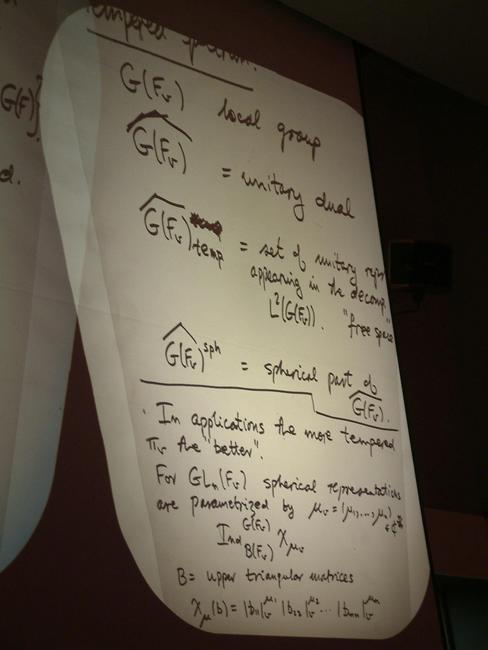 tempered spectrum.
G(F)}
d.
G(F_v) local group
\widehat{G(F_v)} = unitary dual
\widehat{G(F_v)}_{temp} = set of unitary reprs
appearing in the decomp
L²(G(F_v)). "free space"
\widehat{G(F_v)}^{sph} = spherical part of
\widehat{G(F_v)}.
· In applications the more tempered
π_v the "better".
For GL_n(F_v) spherical representations
are parametrized by μ_v = (μ_1, ..., μ_n) ∈ ℂ^n
Ind_{B(F_v)}^{G(F_v)} χ_{μ_v}
B = upper triangular matrices
χ_μ(b) = |b_{11}|_v^{μ_1} |b_{22}|_v^{μ_2} ... |b_{nn}|_v^{μ_n}